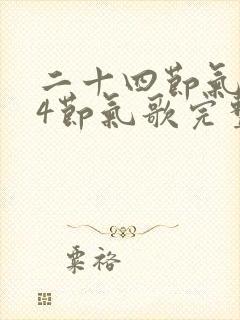 二十四節氣
4節氣歌完整
粟裕